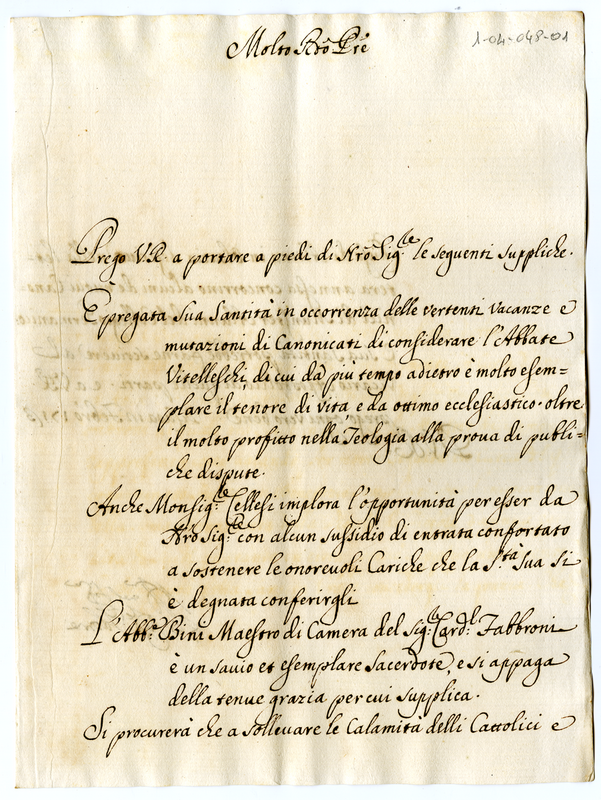 1-04-048-01
Molto Rdo Pre
Prego V.R. a portare a piedi di Nro Sig.re le seguenti suppliche.
È pregata Sua Santità in occorrenza delle vertenti vacanze e
mutazioni di Canonicati di considerare l'Abbate
Vitelleschi, di cui da più tempo adietro è molto esem=
plare il tenore di vita, e da ottimo ecclesiastico. oltre
il molto profitto nella Teologia alla prova di publi=
che dispute.
Anche Monsig.re Cellesi implora l'opportunità per esser da
Nro Sig.re con alcun sussidio di entrata confortato
a sostenere le onorevoli Cariche che la S.tà Sua si
è degnata conferirgli
L'Abb.e Bini Maestro di Camera del Sig.r Card.l Fabbroni
è un savio et esemplare Sacerdote, e si appaga
della tenue grazia per cui supplica.
Si procurerà che a sollevare le Calamità delli Cattolici e